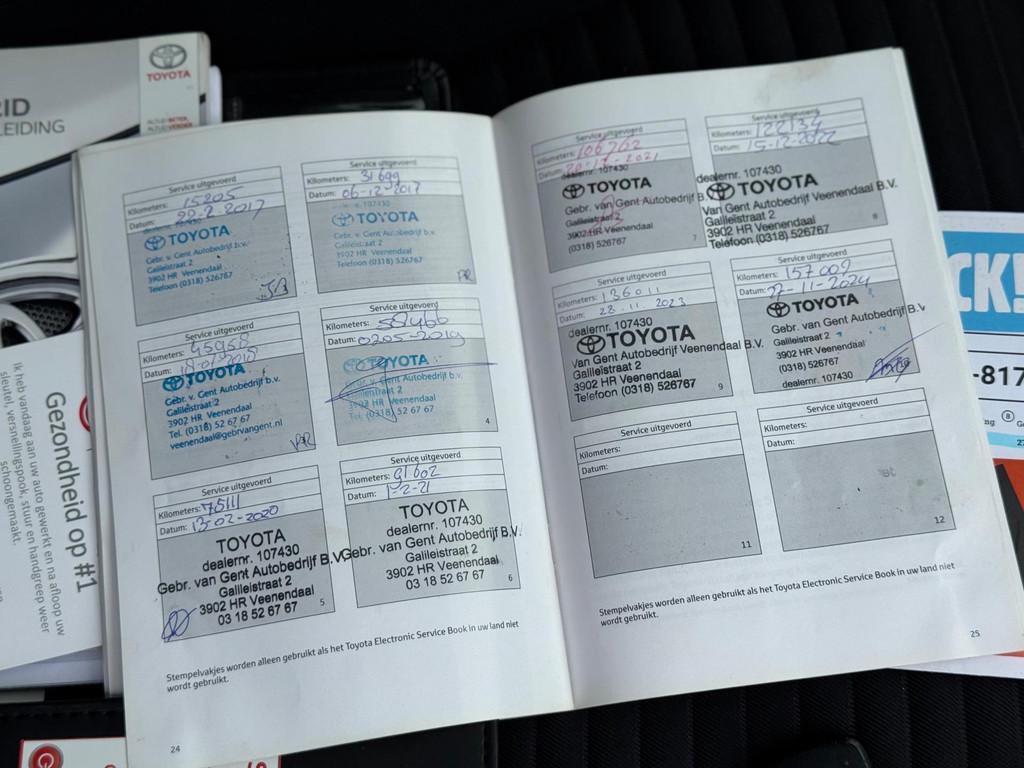 TOYOTA
RID
LEIDING
Gezondheid op #1
Ik heb vandaag aan uw auto gewerkt en na afloop uw
sleutel, versnellingspook, stuur en handgreep weer
schoongemaakt.
Service uitgevoerd
Kilometers: 15205
Datum: 22-2-2017
TOYOTA
Gebr. v. Gent Autobedrijf b.v.
Galileistraat 2
3902 HR Veenendaal
Telefoon (0318) 526767
Service uitgevoerd
Kilometers: 31699
Datum: 06-12-2017
TOYOTA
Gebr. v. Gent Autobedrijf b.v.
Galileistraat 2
3902 HR Veenendaal
Telefoon (0318) 526767
Service uitgevoerd
Kilometers: 45958
Datum:
TOYOTA
Gebr. v. Gent Autobedrijf b.v.
Galileistraat 2
3902 HR Veenendaal
Tel. (0318) 52 67 67
veenendaal@gebrvangent.nl
Service uitgevoerd
Kilometers: 58466
Datum: 0205-2019
TOYOTA
Gebr. v. Gent Autobedrijf b.v.
Galileistraat 2
3902 HR Veenendaal
Tel. (0318) 52 67 67
4
Service uitgevoerd
Kilometers: 75111
Datum: 13-02-2020
TOYOTA
dealernr. 107430
Gebr. van Gent Autobedrijf B.V.
Galileistraat 2
3902 HR Veenendaal
03 18 52 67 67
5
Service uitgevoerd
Kilometers: 91602
Datum: 1-2-21
TOYOTA
dealernr. 107430
Gebr. van Gent Autobedrijf B.V.
Galileistraat 2
3902 HR Veenendaal
03 18 52 67 67
6
Stempelvakjes worden alleen gebruikt als het Toyota Electronic Service Book in uw land niet
wordt gebruikt.
24
Service uitgevoerd
Kilometers: 106762
Datum:
dealernr. 107430
TOYOTA
Gebr. van Gent Autobedrijf B.V.
Galileistraat 2
3902 HR Veenendaal
(0318) 526767
7
Service uitgevoerd
Kilometers: 122134
Datum: 15-12-2022
dealernr. 107430
TOYOTA
Van Gent Autobedrijf Veenendaal B.V.
Galileistraat 2
3902 HR Veenendaal
Telefoon (0318) 526767
8
Service uitgevoerd
Kilometers: 136011
Datum: 28.11.2023
dealernr. 107430
TOYOTA
Van Gent Autobedrijf Veenendaal B.V.
Galileistraat 2
3902 HR Veenendaal
Telefoon (0318) 526767
9
Service uitgevoerd
Kilometers: 157009
Datum: 27-11-2024
TOYOTA
Gebr. van Gent Autobedrijf B.V.
Galileistraat 2
3902 HR Veenendaal
(0318) 526767
dealernr. 107430
Service uitgevoerd
Kilometers:
Datum:
11
Service uitgevoerd
Kilometers:
Datum:
12
Stempelvakjes worden alleen gebruikt als het Toyota Electronic Service Book in uw land niet
wordt gebruikt.
25
CK!
-817